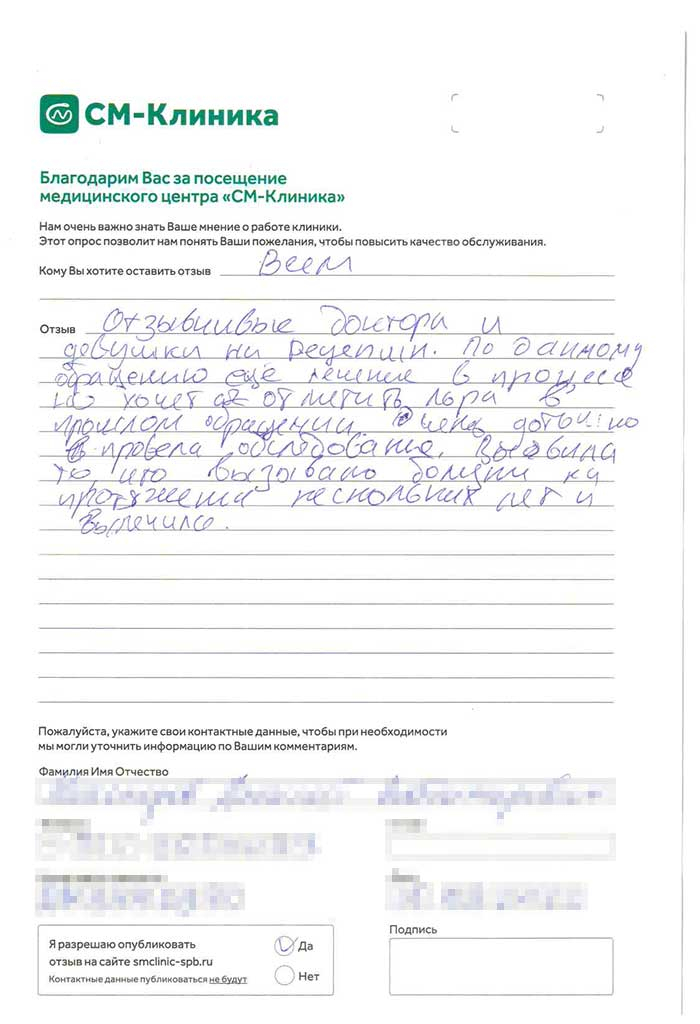 СМ-Клиника
Благодарим Вас за посещение
медицинского центра «СМ-Клиника»
Нам очень важно знать Ваше мнение о работе клиники.
Этот опрос позволит нам понять Ваши пожелания, чтобы повысить качество обслуживания.
Кому Вы хотите оставить отзыв Всем
Отзыв Отзывчивые доктора и
девушки на рецепции. По данному
обращению еще лечение в процессе
но хочется отметить лора в
прошлом обращении. Очень дотошно
провела обследование. Выявила
то, что вызывало болезни на
протяжении нескольких лет и
вылечила.
Пожалуйста, укажите свои контактные данные, чтобы при необходимости
мы могли уточнить информацию по Вашим комментариям.
Фамилия Имя Отчество
Я разрешаю опубликовать
отзыв на сайте smclinic-spb.ru
Контактные данные публиковаться не будут
Да
Нет
Подпись